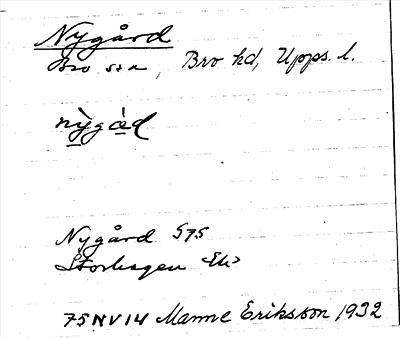 Nygård
Bro sn, Bro hd, Upps. l.
nỳgàd
Nygård 575
Storhagen <Ek>
75NV14 Manne Eriksson 1932